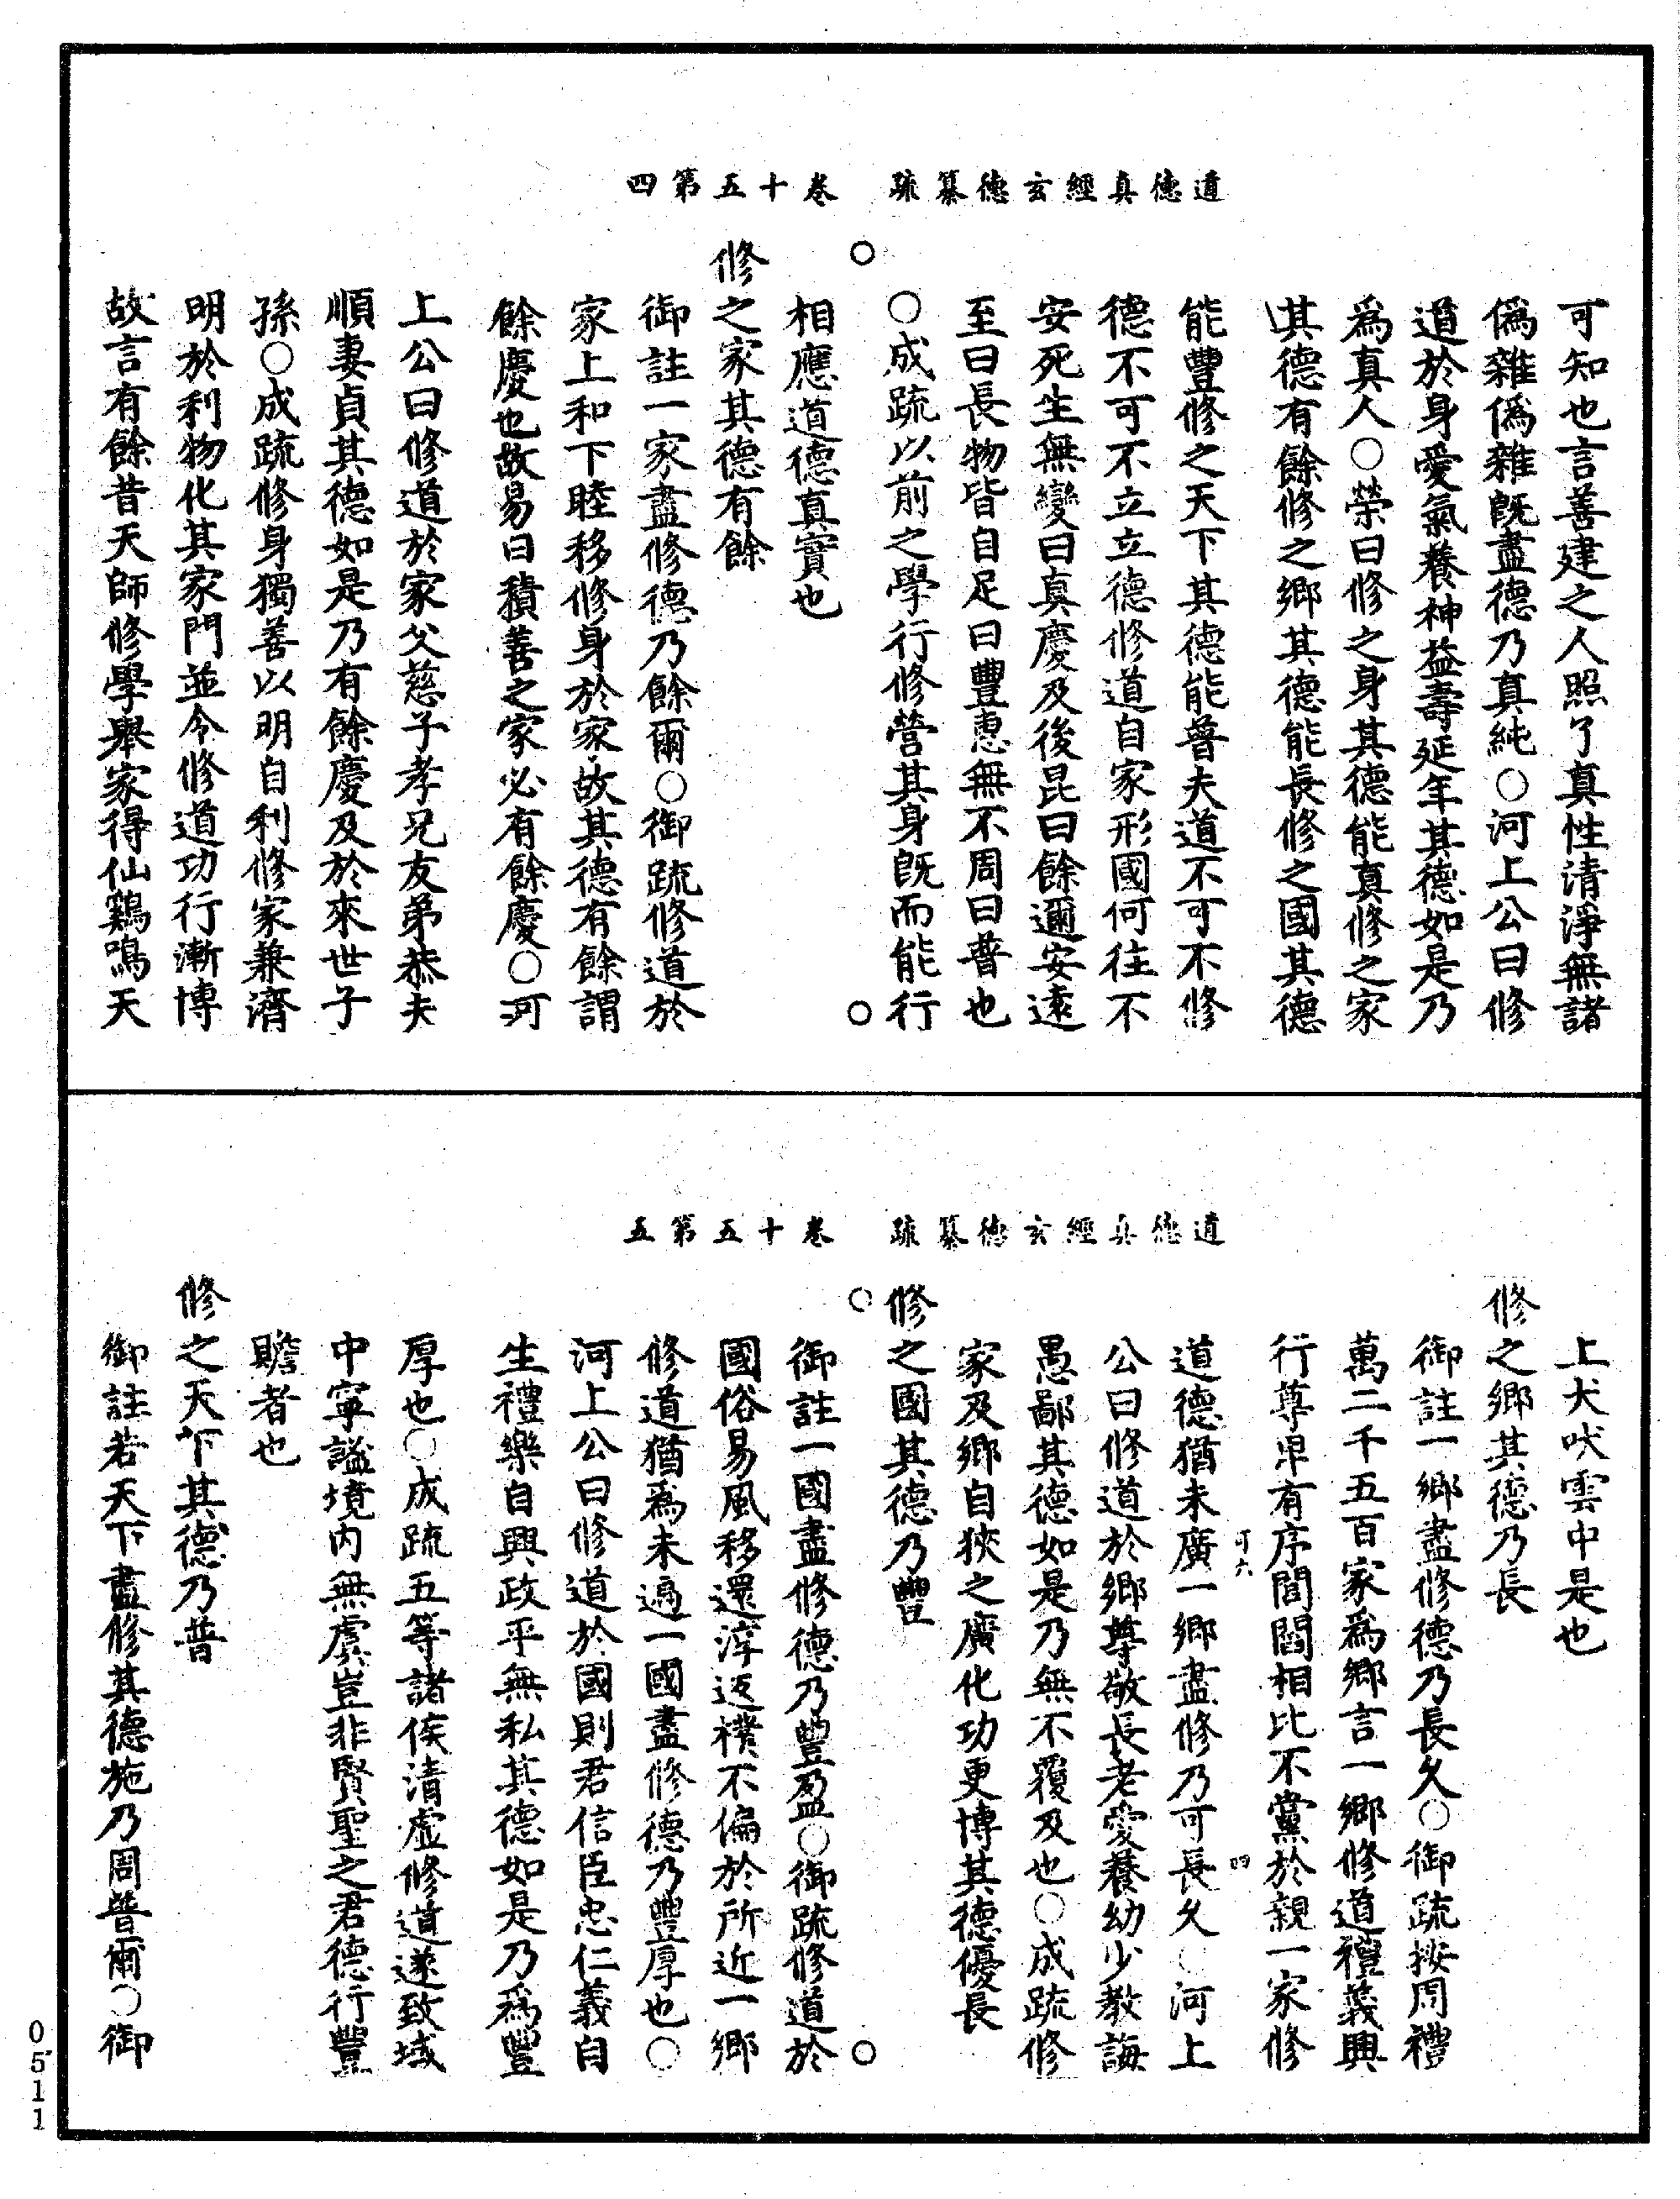 道德真經玄德纂疏　卷十五第四
可知也言善建之人照了真性清淨無諸
僞雜僞雜旣盡德乃真純○河上公曰修
道於身愛氣養神益壽延年其德如是乃
爲真人○榮曰修之身其德能真修之家
其德有餘修之鄉其德能長修之國其德
能豐修之天下其德能普夫道不可不修
德不可不立立德修道自家形國何往不
安死生無變曰真慶及後昆曰餘邇安遠
至曰長物皆自足曰豐惠無不周曰普也
○成疏以前之學行修營其身旣而能行
相應道德真實也
修之家其德有餘
御註一家盡修德乃餘爾○御疏修道於
家上和下睦移修身於家故其德有餘謂
餘慶也故易曰積善之家必有餘慶○河
上公曰修道於家父慈子孝兄友弟恭夫
順妻貞其德如是乃有餘慶及於來世子
孫○成疏修身獨善以明自利修家兼濟
明於利物化其家門並令修道功行漸博
故言有餘昔天師修學舉家得仙鷄鳴天
道德真經玄德纂疏　卷十五第五
上犬吠雲中是也
修之鄉其德乃長
御註一鄉盡修德乃長久○御疏按周禮
萬二千五百家爲鄉言一鄉修道禮義興
行尊卑有序閭閻相比不黨於親一家修
可六　四
道德猶未廣一鄉盡修乃可長久○河上
公曰修道於鄉尊敬長老愛養幼少教誨
愚鄙其德如是乃無不覆及也○成疏修
家及鄉自狹之廣化功更博其德優長
修之國其德乃豐
御註一國盡修德乃豐盈○御疏修道於
國俗易風移還淳返樸不偏於所近一鄉
修道猶爲未遍一國盡修德乃豐厚也○
河上公曰修道於國則君信臣忠仁義自
生禮樂自興政平無私其德如是乃爲豐
厚也○成疏五等諸侯清虛修道遂致域
中寧謐境內無虞豈非賢聖之君德行豐
贍者也
修之天下其德乃普
御註若天下盡修其德施乃周普爾○御
0511